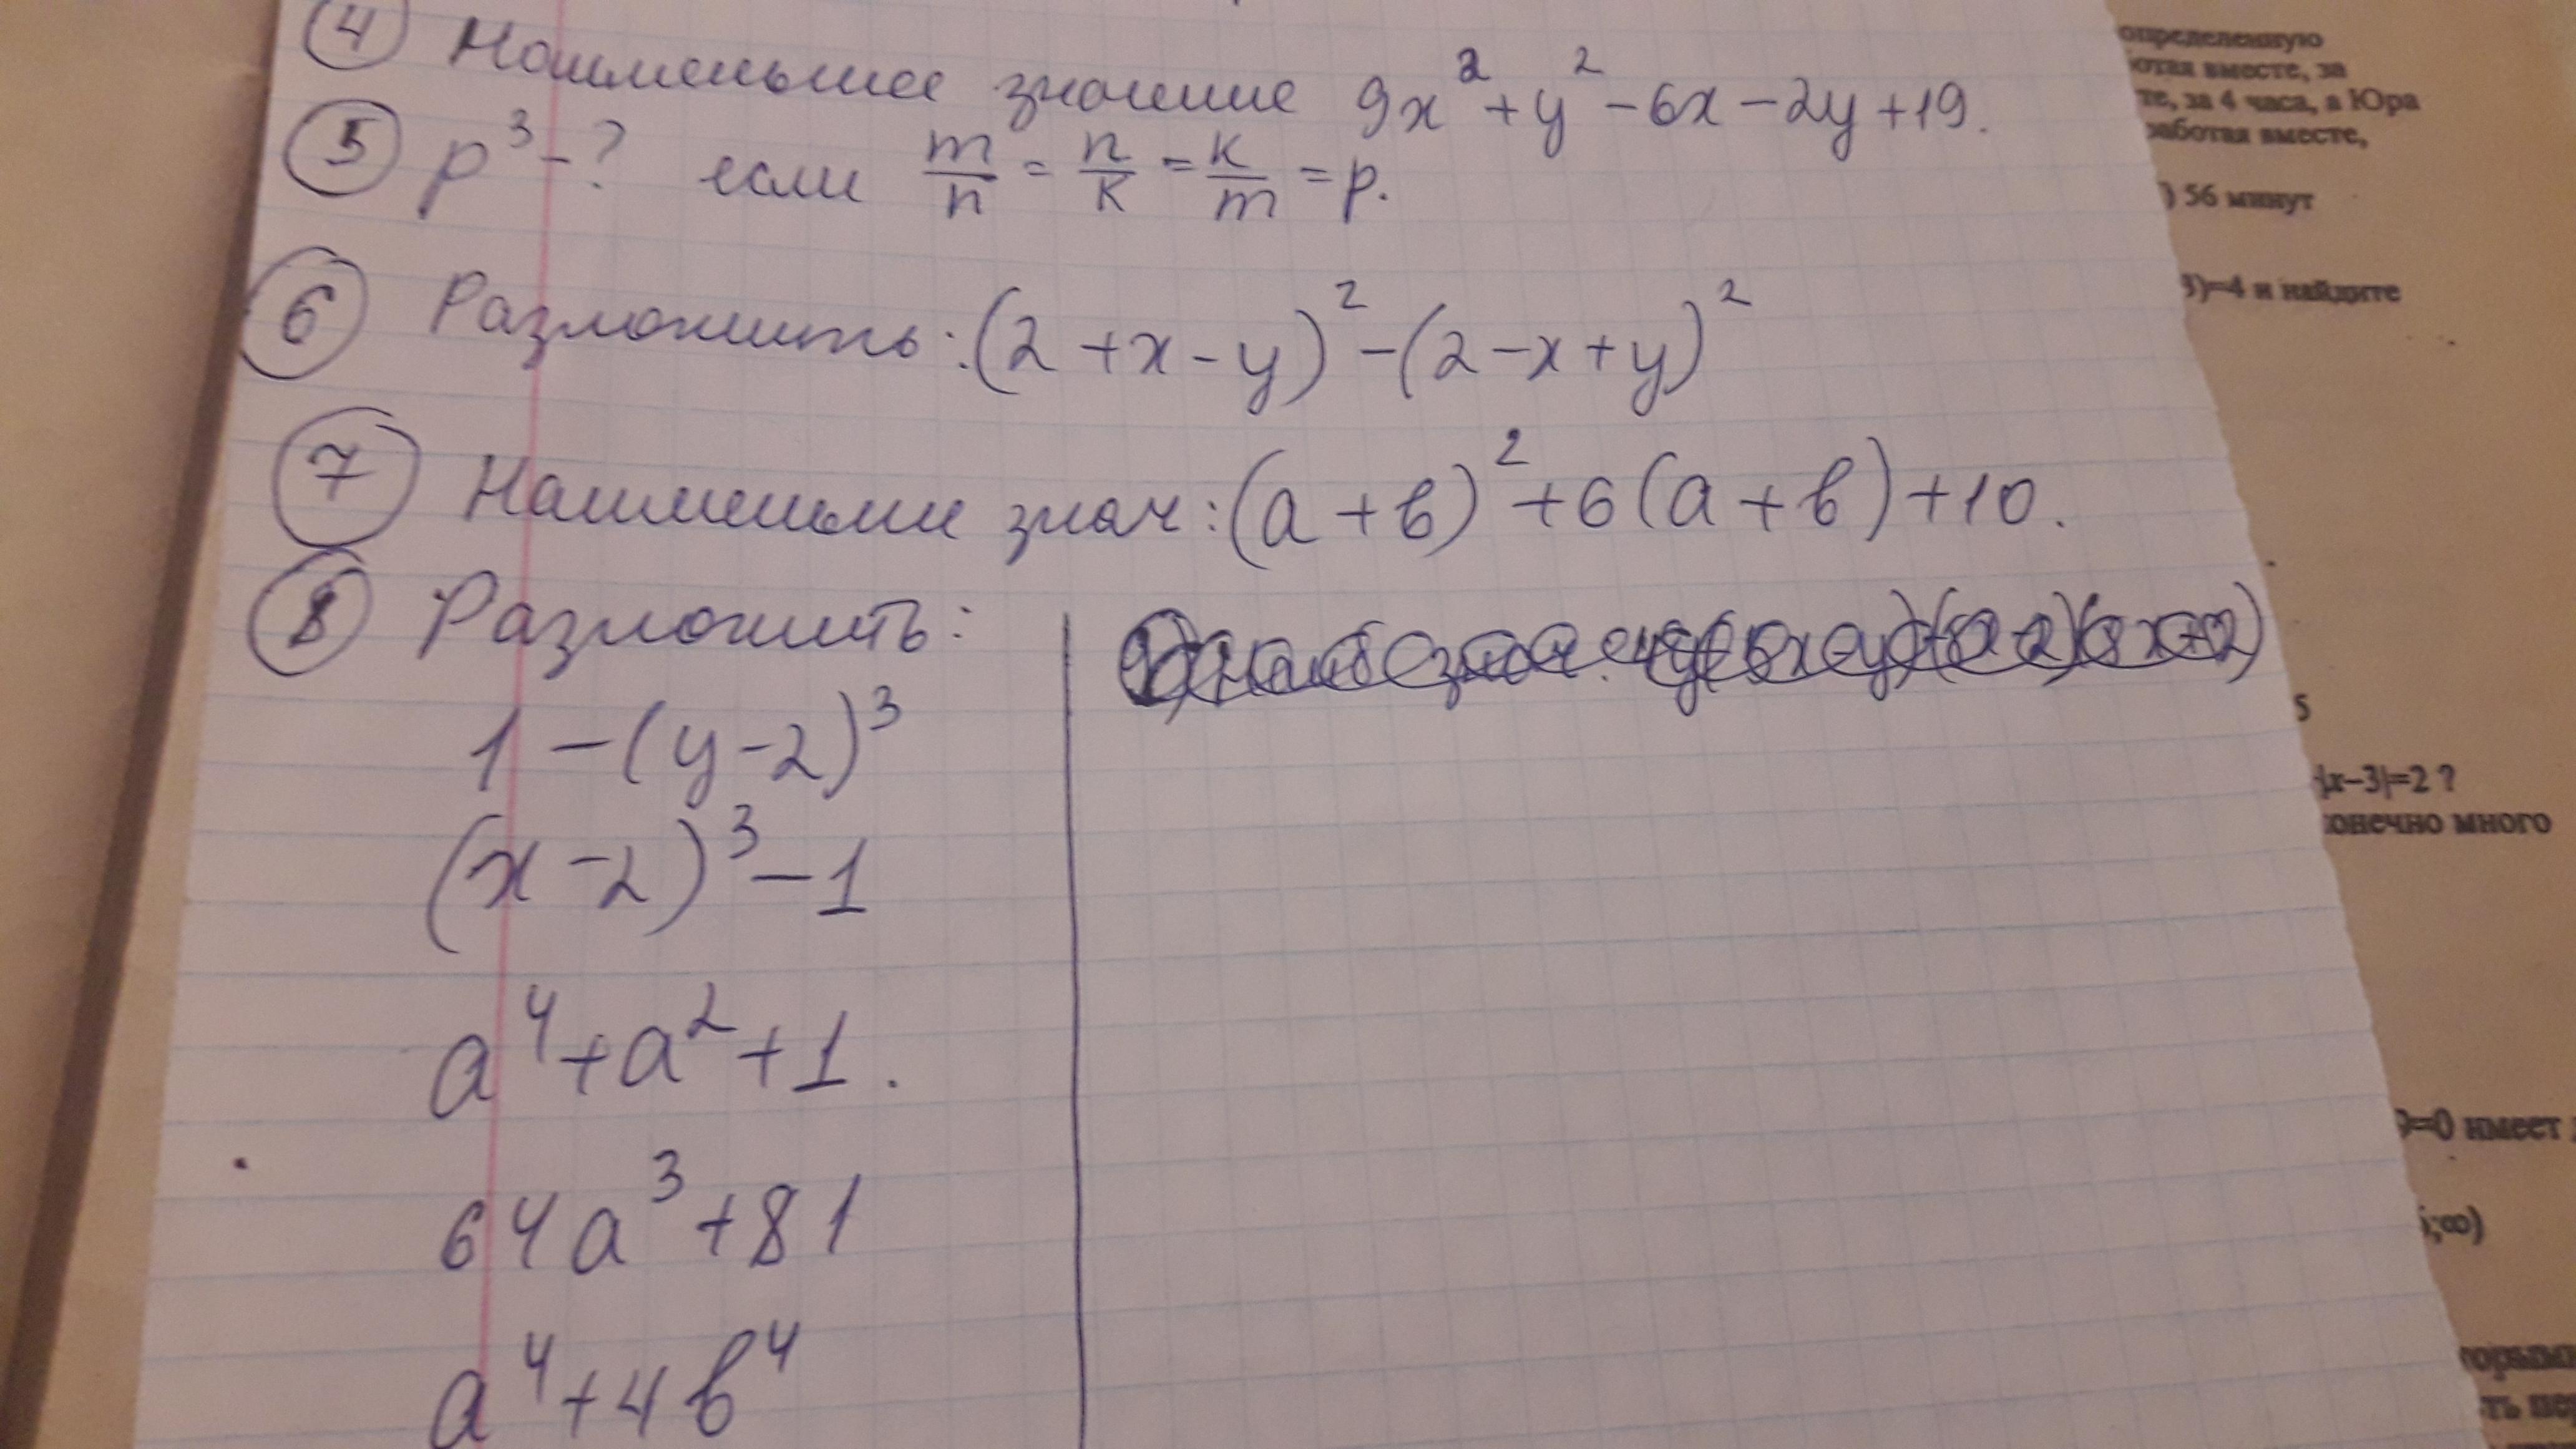 4 Наименьшее значение 9x² + y² - 6x - 2y + 19.
5 p³ - ? если m/n = n/k = k/m = p.
6 Разложить: (2 + x - y)² - (2 - x + y)²
7 Наименьши знач: (a + b)² + 6(a + b) + 10.
8 Разложить:
1 - (y - 2)³
(x - 2)³ - 1
a⁴ + a² + 1.
64a³ + 81
a⁴ + 4b⁴
определенную
вместе, за
за 4 часа, а Юра
работая вместе,
) 56 минут
3)=4 и найдите
5
|x–3|=2 ?
много
9=0 имеет
;∞)